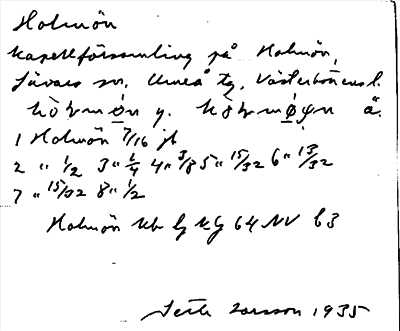 Holmön
kapellförsamling på Holmön,
Sävars sn, Umeå tg, Västerbottens l.
y. ä.
1 Holmön 7/16 jb
2 " 1/2 3 " 1/4 4 " 3/8 5 " 15/32 6 " 13/32
7 " 15/32 8 " 1/2
Holmön kb lj kg 64 NV b3
Larsson 1935